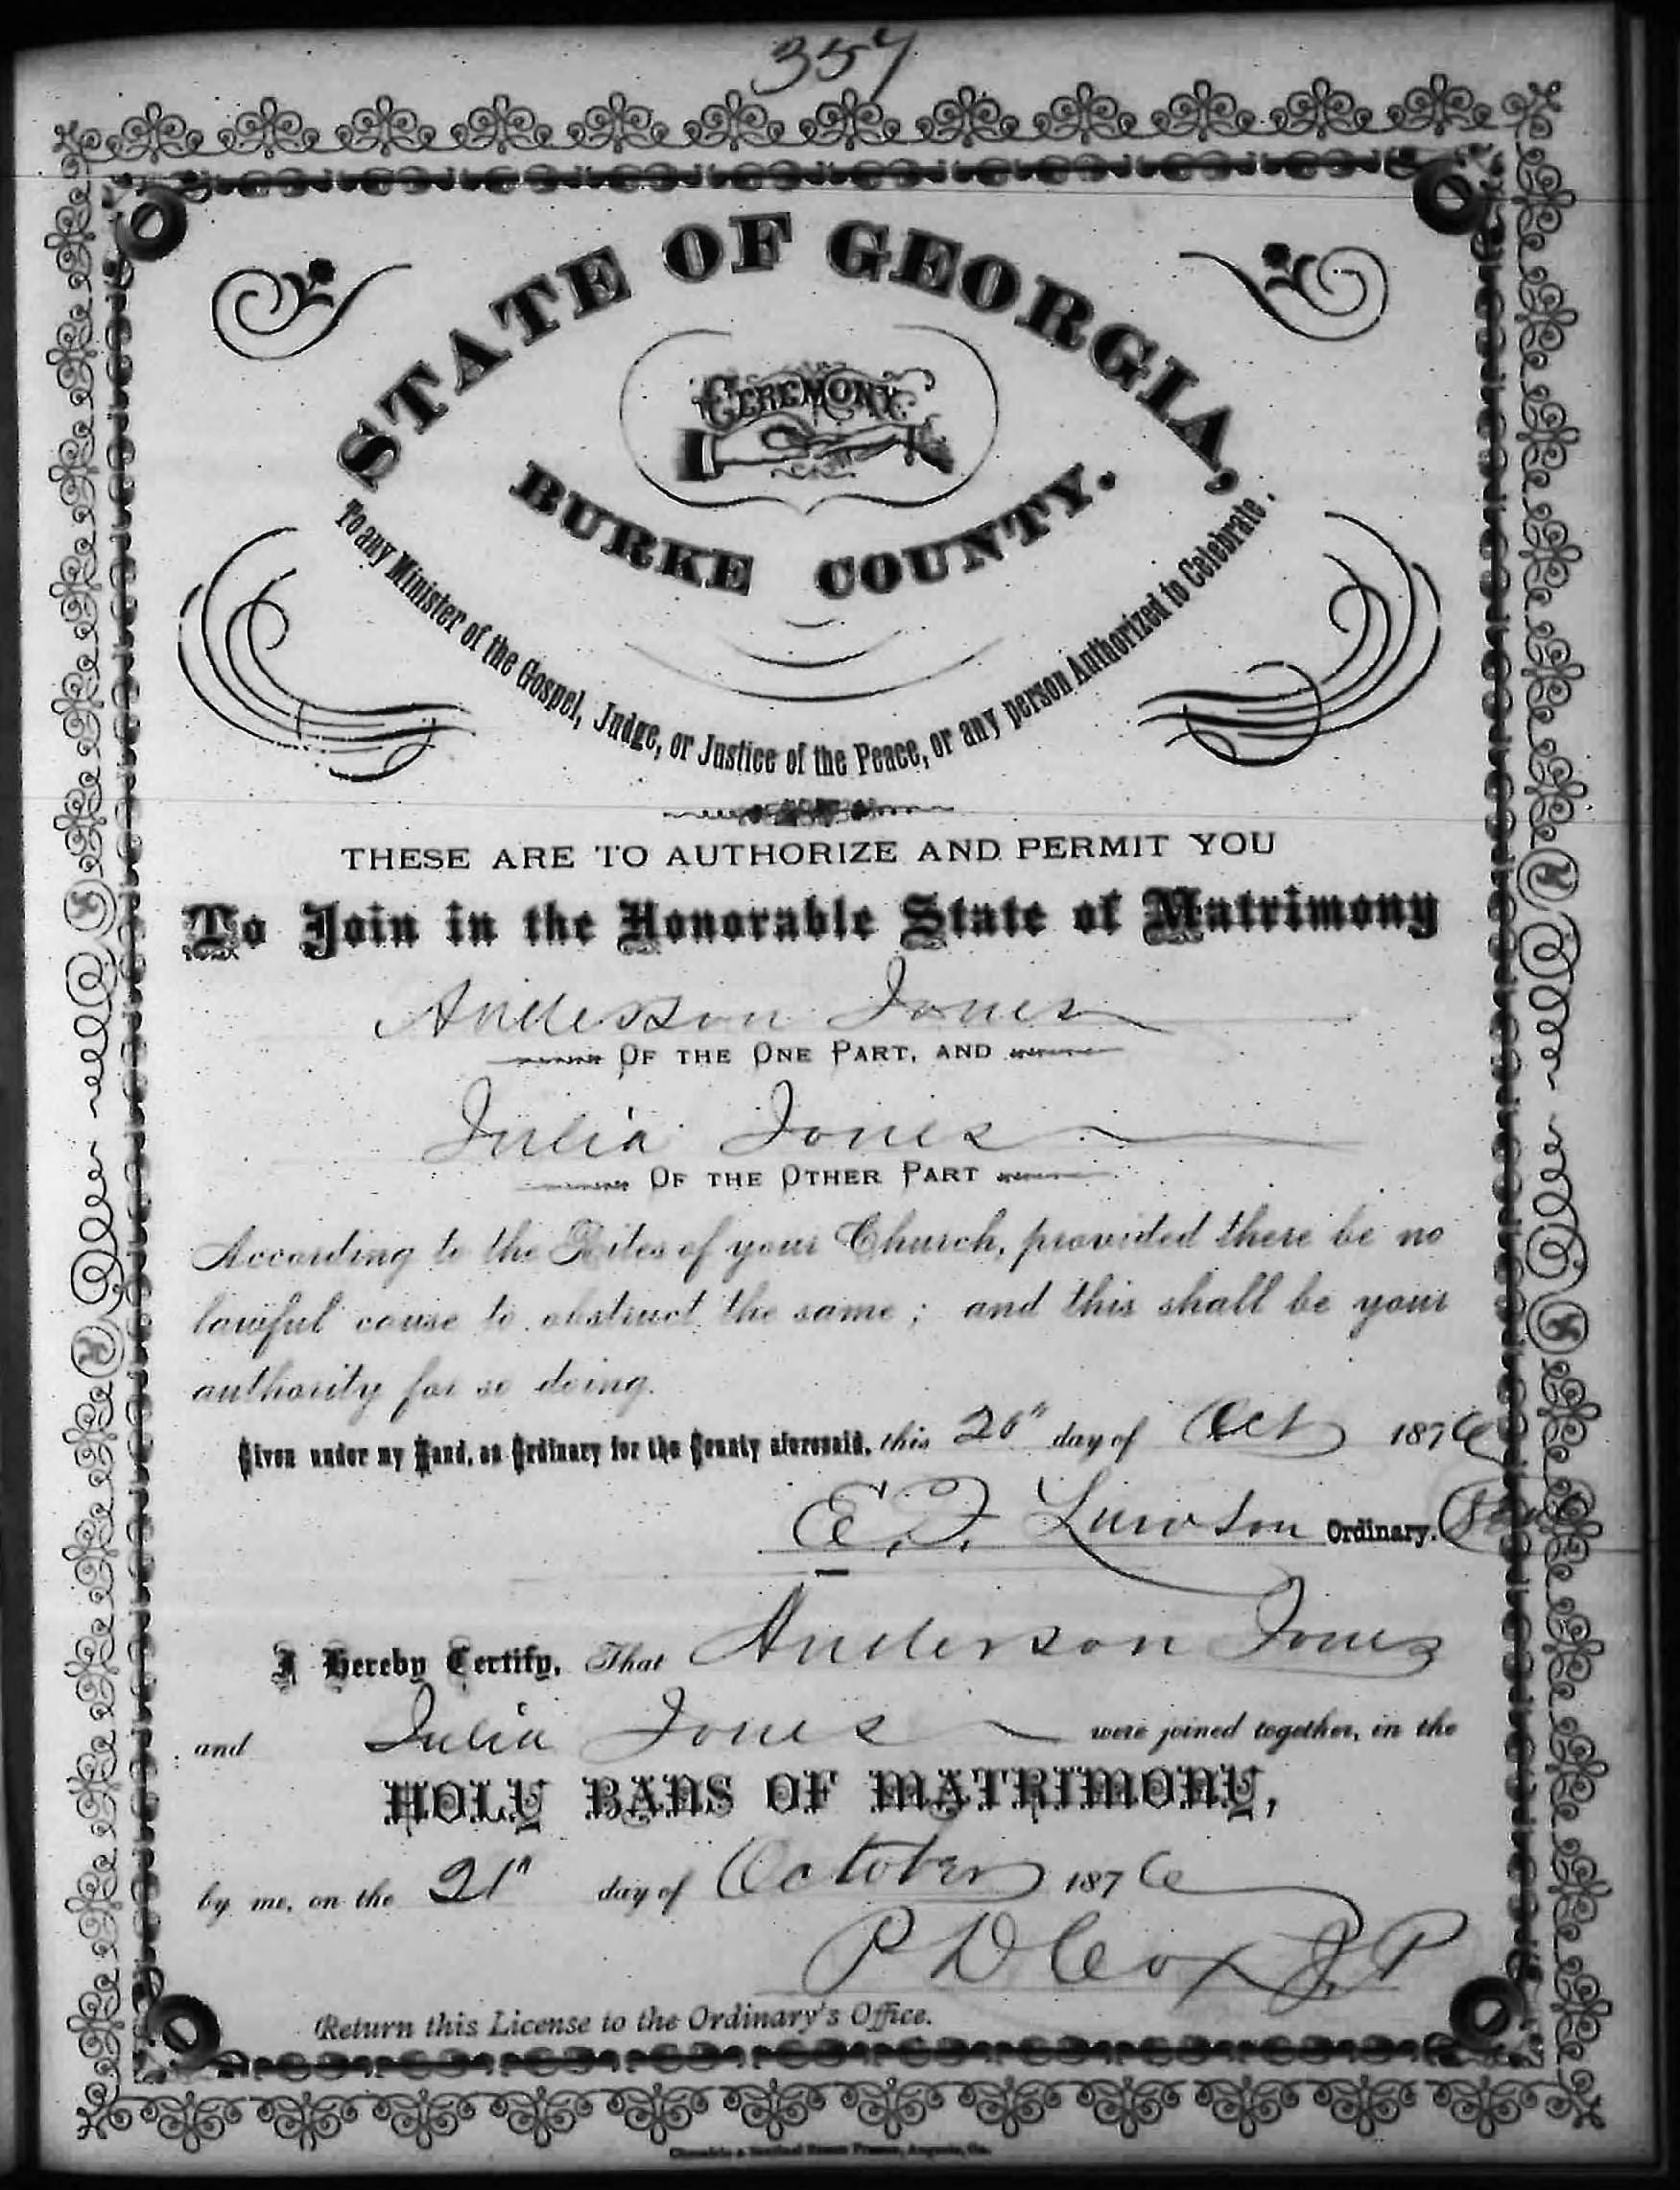 357
STATE OF GEORGIA,
CEREMONY
BURKE COUNTY.
To any Minister of the Gospel, Judge, or Justice of the Peace, or any person Authorized to Celebrate.
THESE ARE TO AUTHORIZE AND PERMIT YOU
To Join in the Honorable State of Matrimony
Anderson Jones
OF THE ONE PART, AND
Julia Jones
OF THE OTHER PART
According to the Rites of your Church, provided there be no
lawful cause to obstruct the same; and this shall be your
authority for so doing.
Given under my Hand, as Ordinary for the County aforesaid, this 20" day of Oct 1876
E. F. Lawson Ordinary.
I Hereby Certify, That Anderson Jones
and Julia Jones were joined together, in the
HOLY BANS OF MATRIMONY,
by me, on the 21" day of October 1876
P D Cox J.P
Return this License to the Ordinary's Office.
Chronicle & Sentinel Steam Presses, Augusta, Ga.